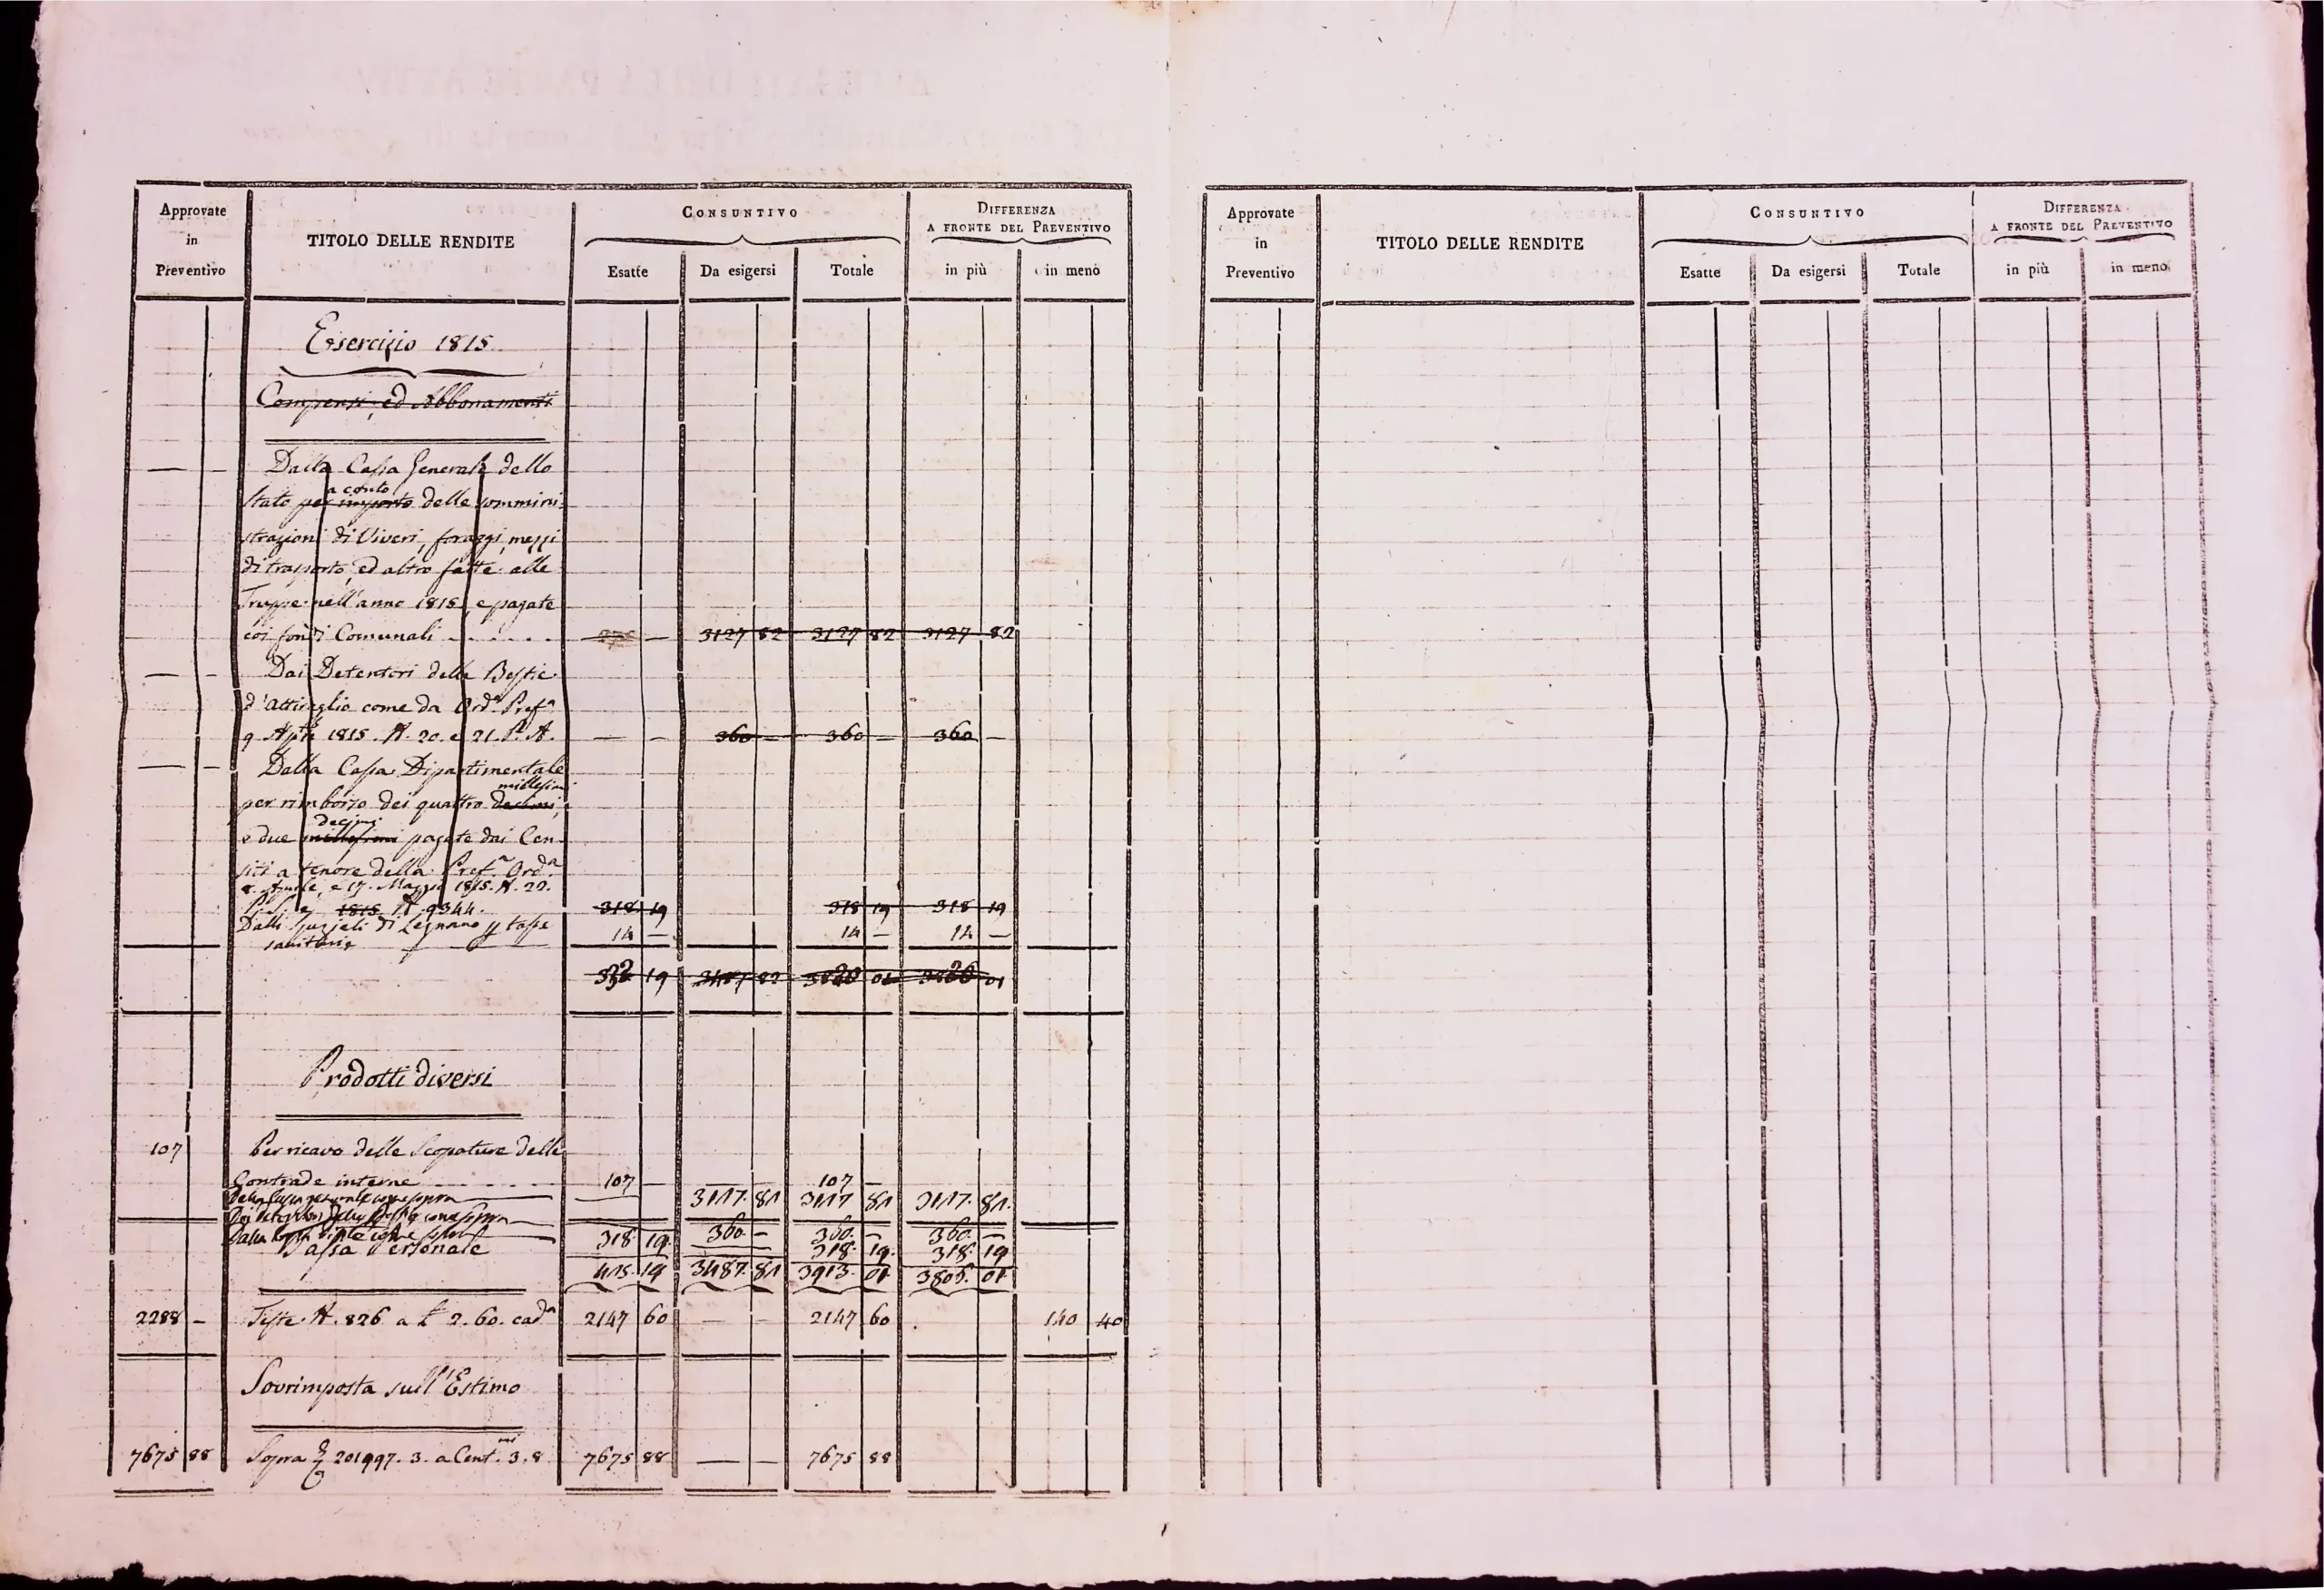 Approvate in Preventivo
TITOLO DELLE RENDITE
CONSUNTIVO
Esatte
Da esigersi
Totale
DIFFERENZA
A FRONTE DEL PREVENTIVO
in più
in meno
Esercizio 1815
Compensi, ed Abbonamenti
— — Dalla Cassa Generale dello
a conto
Stato per importo delle sommini
strazioni di Viveri, foraggi, mezzi
di trasporto, ed altro fatte alle
Truppe nell'anno 1815, e pagate
coi fondi Comunali . . . . . . — 3127 82 3127 82 3127 82
— — Dai Detentori delle Bestie
d'Attiraglio come da Ord.a Pref.a
9. Aple 1815. N. 20. e 21. P. A. — — 360 — 360 — 360 —
— — Dalla Cassa Dipartimentale
millesimi
per rimborzo dei quattro decimi,
decimi
e due millesimi pagate dai Cen
siti a tenore della Pref.a Ord.a
8. Aprile, e 17. Maggio 1815. N. 20.
1815 N. 9344. 318 19 318 19 318 19
Dalli Speziali di Legnano p tasse
sanitarie 14 — 14 — 14 —
332 19 3487 82 3820 01 3820 01
Prodotti diversi
107 Per ricavo delle Scopature delle
Contrade interne . . . . . . 107 — 107 —
Dalla Cassa generale come sopra 3117. 81 3117 81 3117. 81.
Dai detentori delle Bestie come sopra 360 — 360. — 360. —
Dalla Cassa Dip.le come sopra 318 19. 318. 19. 318. 19
415. 19 3487. 81 3913. 01. 3805. 01.
Tassa Personale
2288 — Teste N. 826 a L. 2. 60. cad.a 2147 60 — — 2147 60 140 40
Sovrimposta sull'Estimo
7675 88 Sopra 201997. 3. a Cent.mi 3. 8 7675 88 — — 7675 88
Approvate in Preventivo
TITOLO DELLE RENDITE
CONSUNTIVO
Esatte
Da esigersi
Totale
DIFFERENZA
A FRONTE DEL PREVENTIVO
in più
in meno